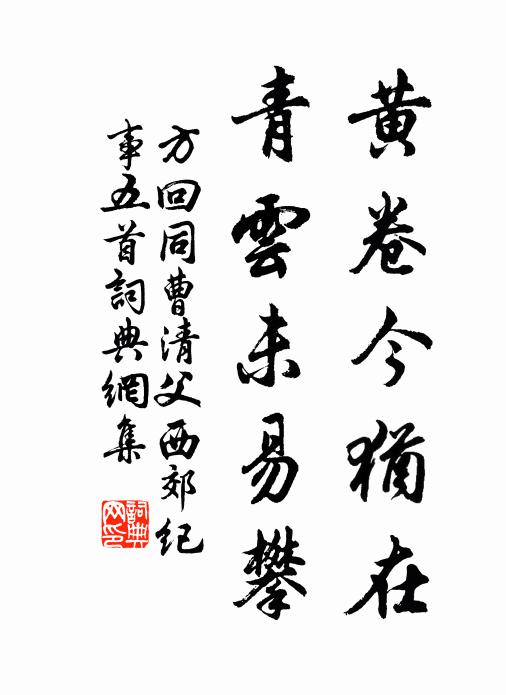 黄卷今猶在
青雲未易攀
方回同曹清父西郊紀
事五首詞典網集
詞典
网印